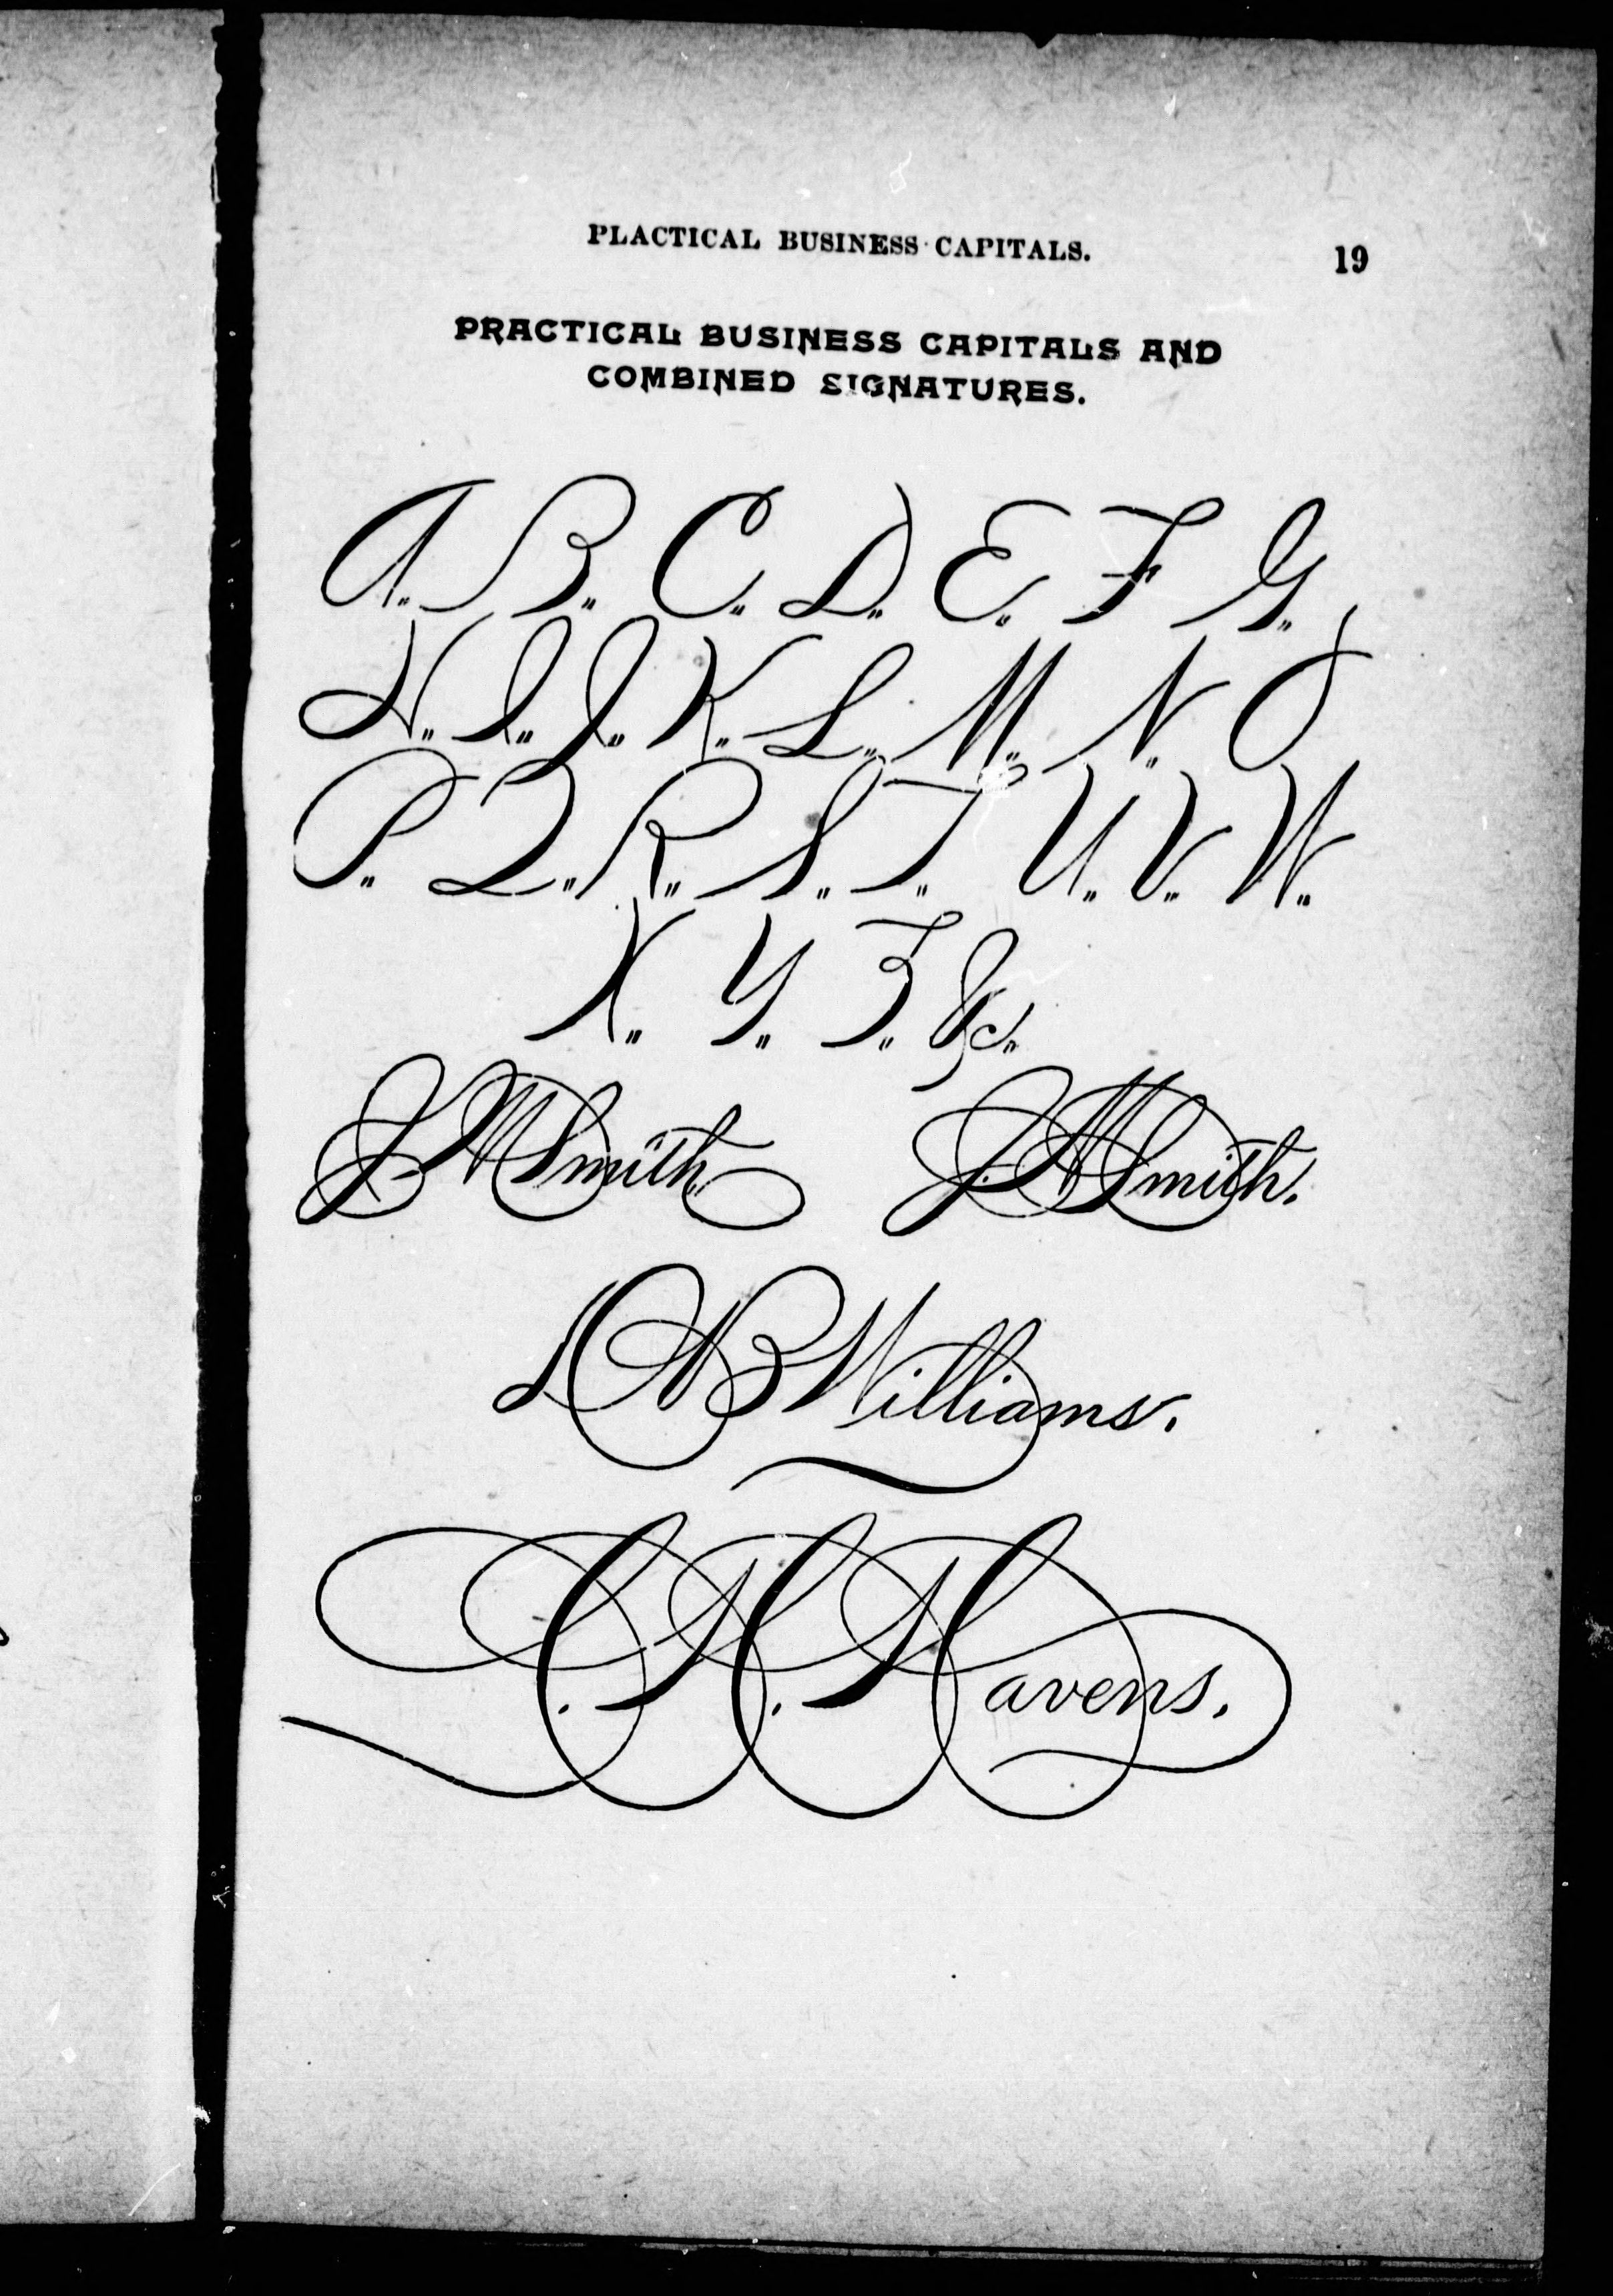 PLACTICAL BUSINESS CAPITALS.
19
PRACTICAL BUSINESS CAPITALS AND
COMBINED SIGNATURES.
A. B. C. D. E. F G.
H. I. J. K. L. M. N. O
P. Q. R. S. T. U. V. W.
X. Y. Z. &c.
J M Smith J. M Smith.
A B Williams.
C. H. Havens.